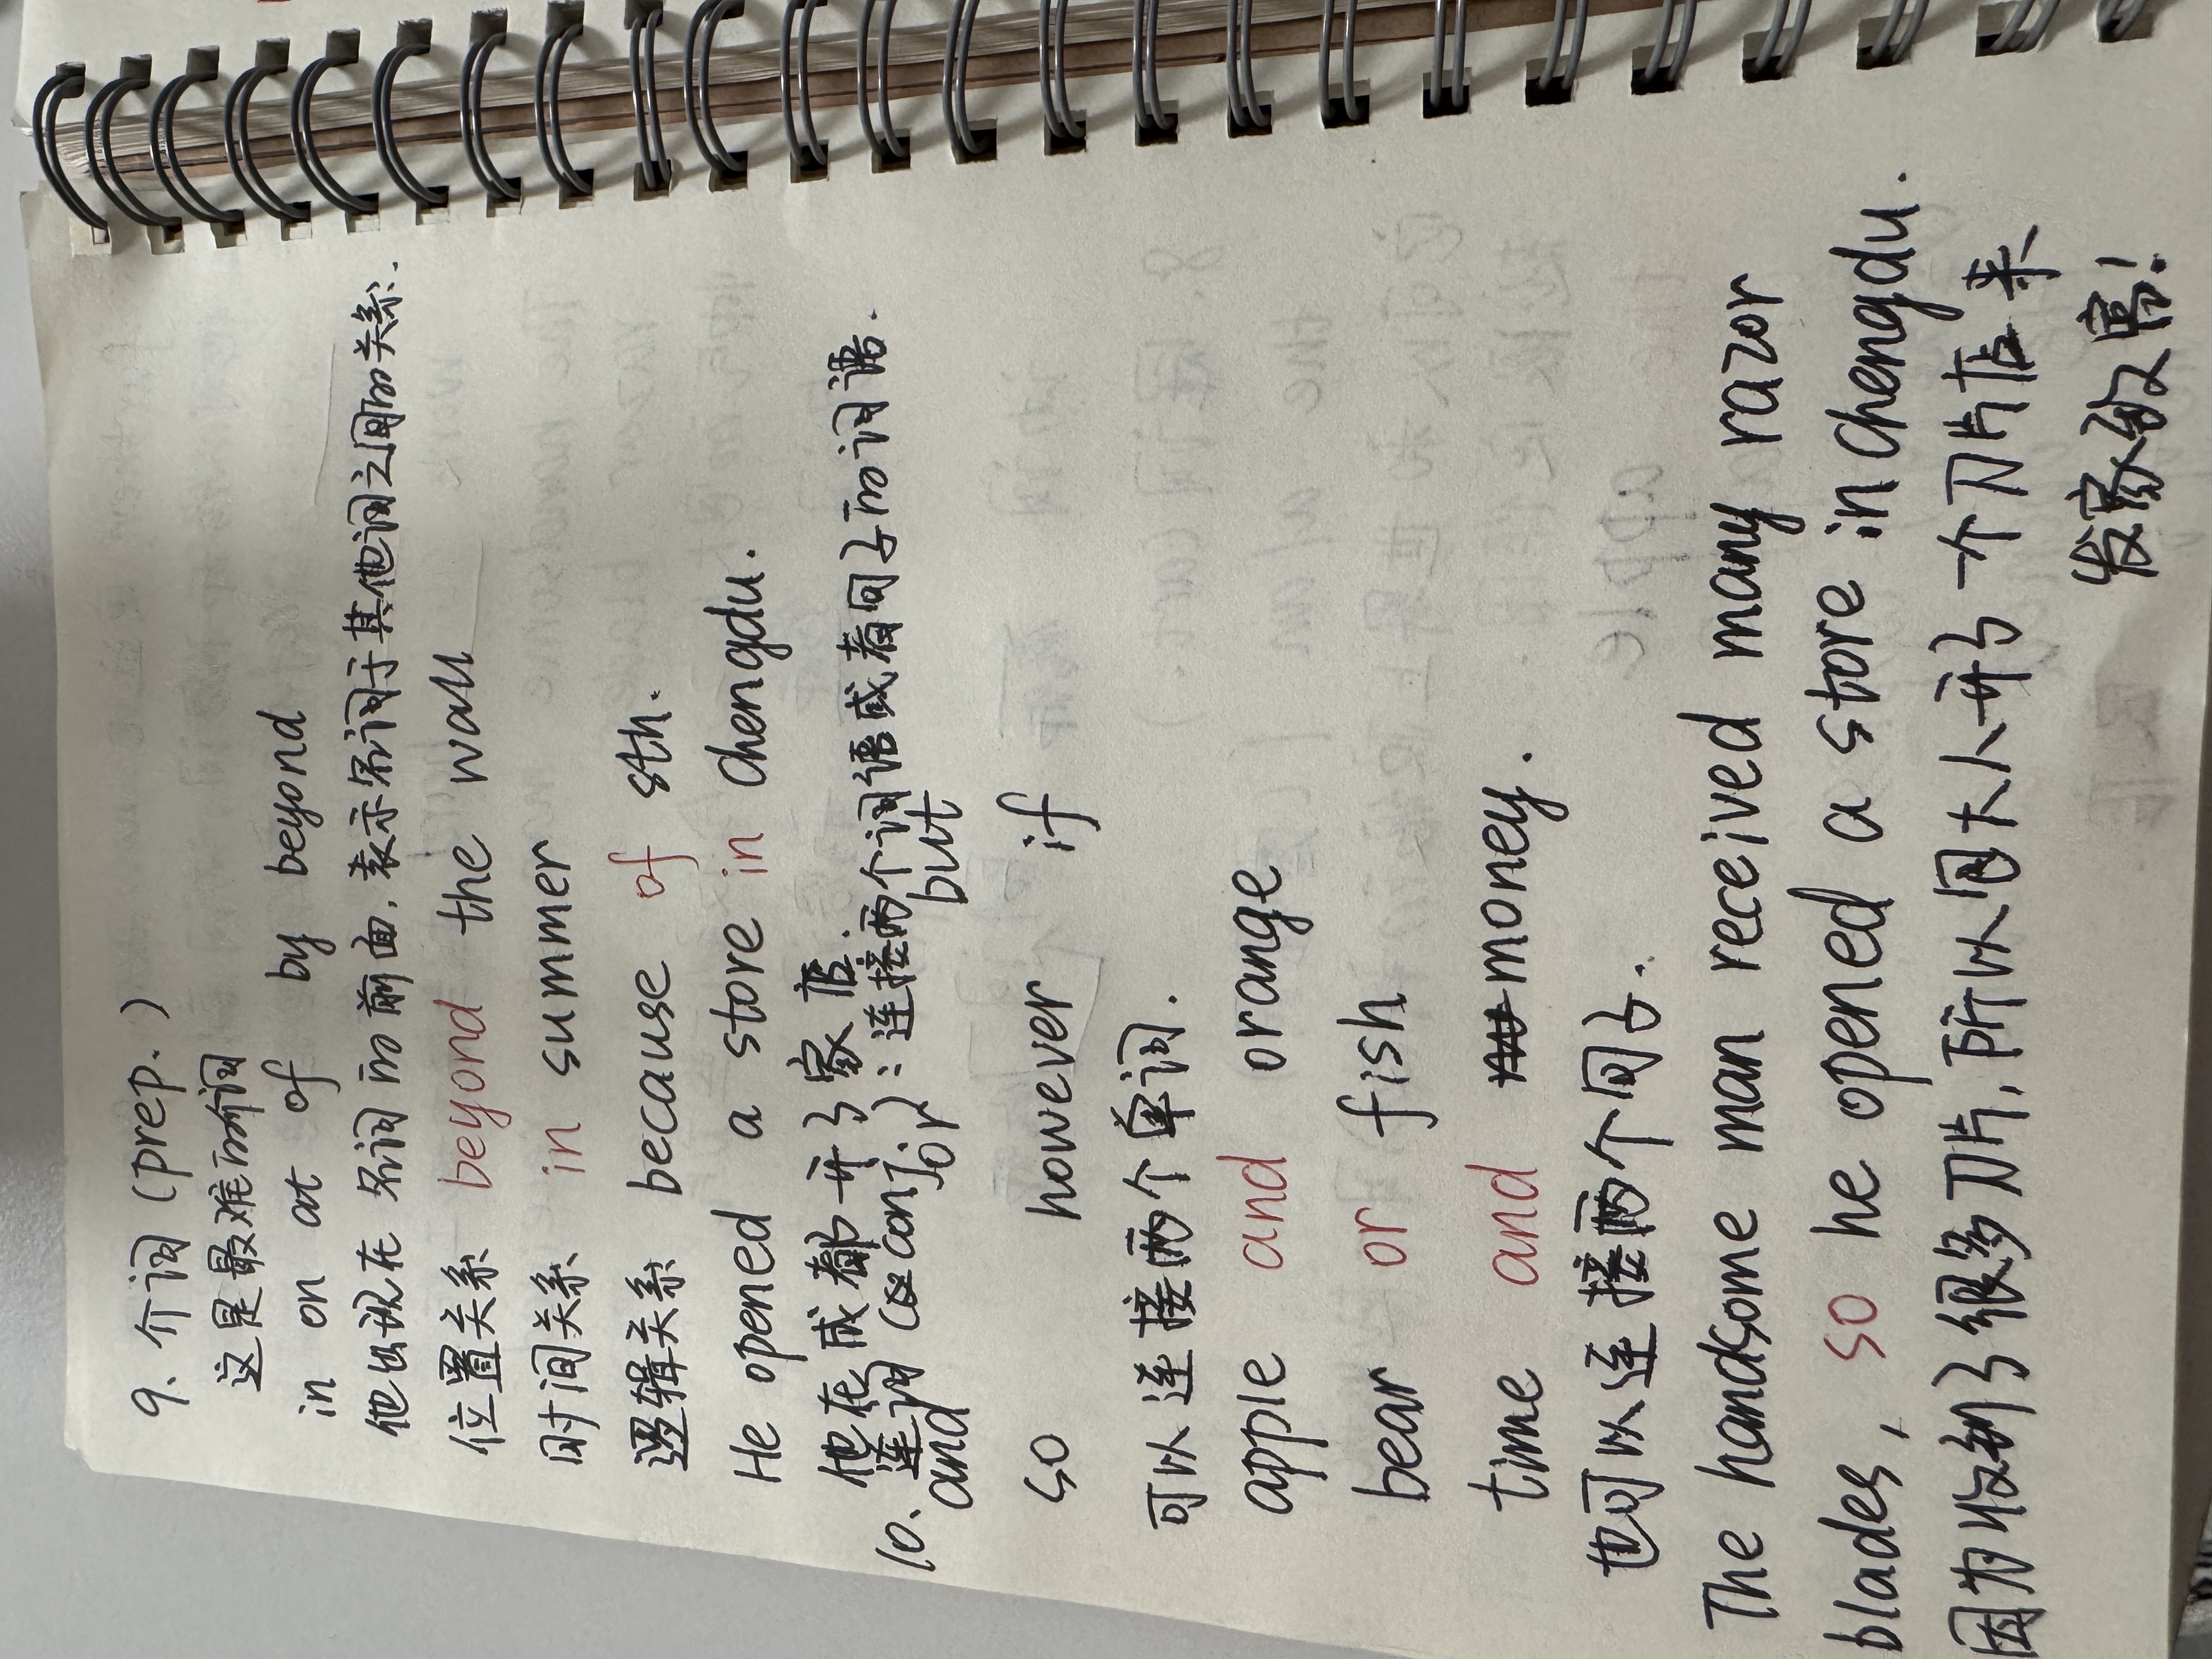 9. 介词 (prep.)
这是最难的介词
in on at of by beyond
他出现在 名词的前面，表示名词于其他词之间的关系.
位置关系 beyond the wall
时间关系 in summer
逻辑关系 because of sth.
He opened a store in Chengdu.
他在成都开了家店.
10. 连词 (conj.)：连接两个词语或者句子的词语.
and or but
so however if
可以连接两个单词.
apple and orange
bear or fish
time and money.
也可以连接两个句子.
The handsome man received many razor
blades, so he opened a store in Chengdu.
因为收到了很多刀片,所以包大人开了一个刀片店来
发家致富!